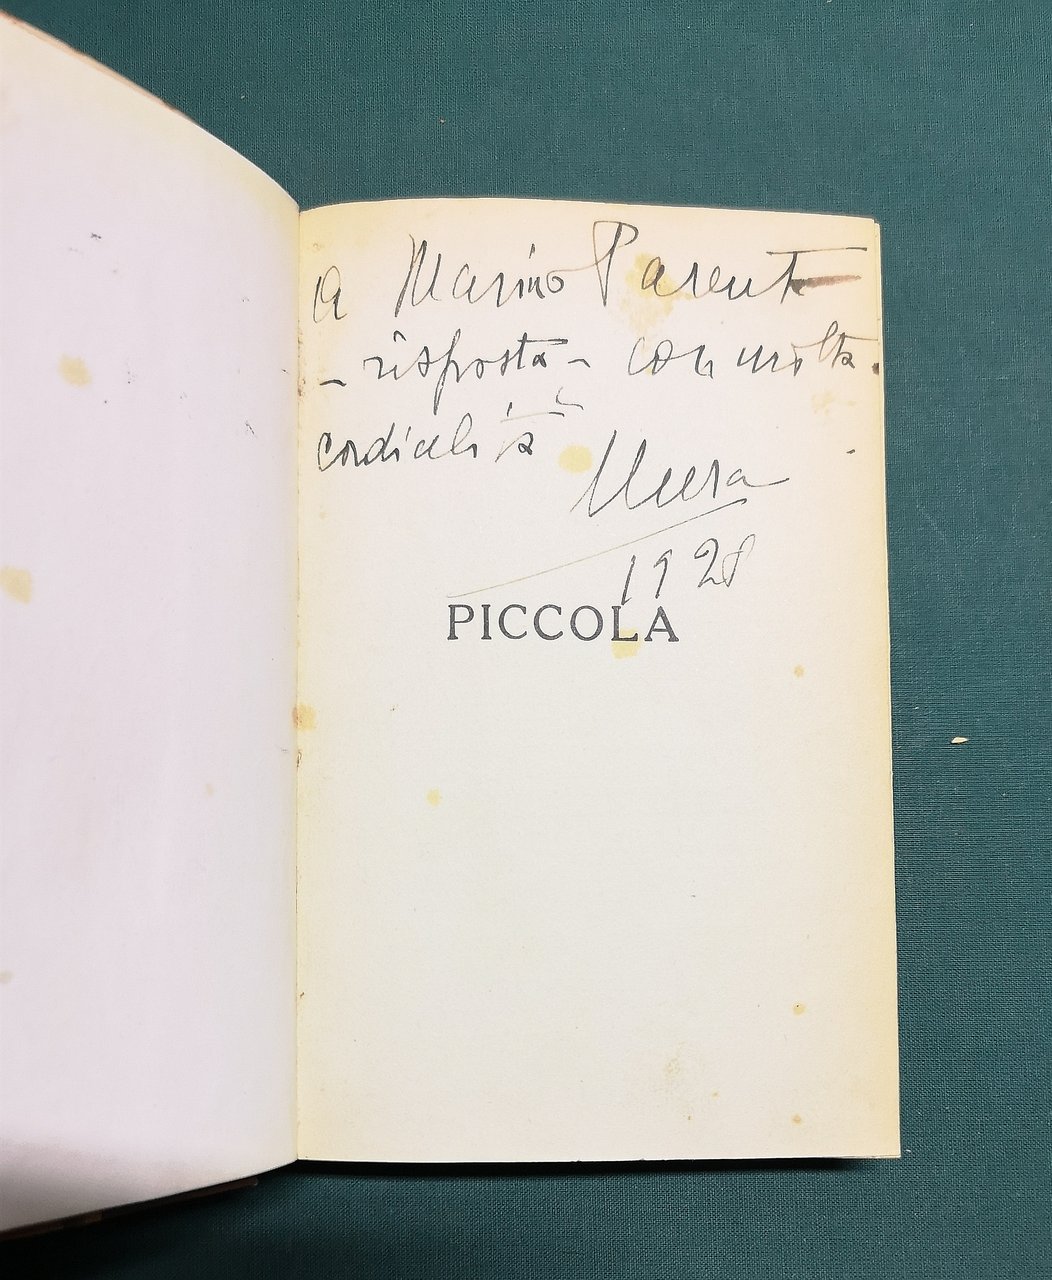 a Marino Parenti
- risposta - con molta
cordialità
Mura
1928
PICCOLA